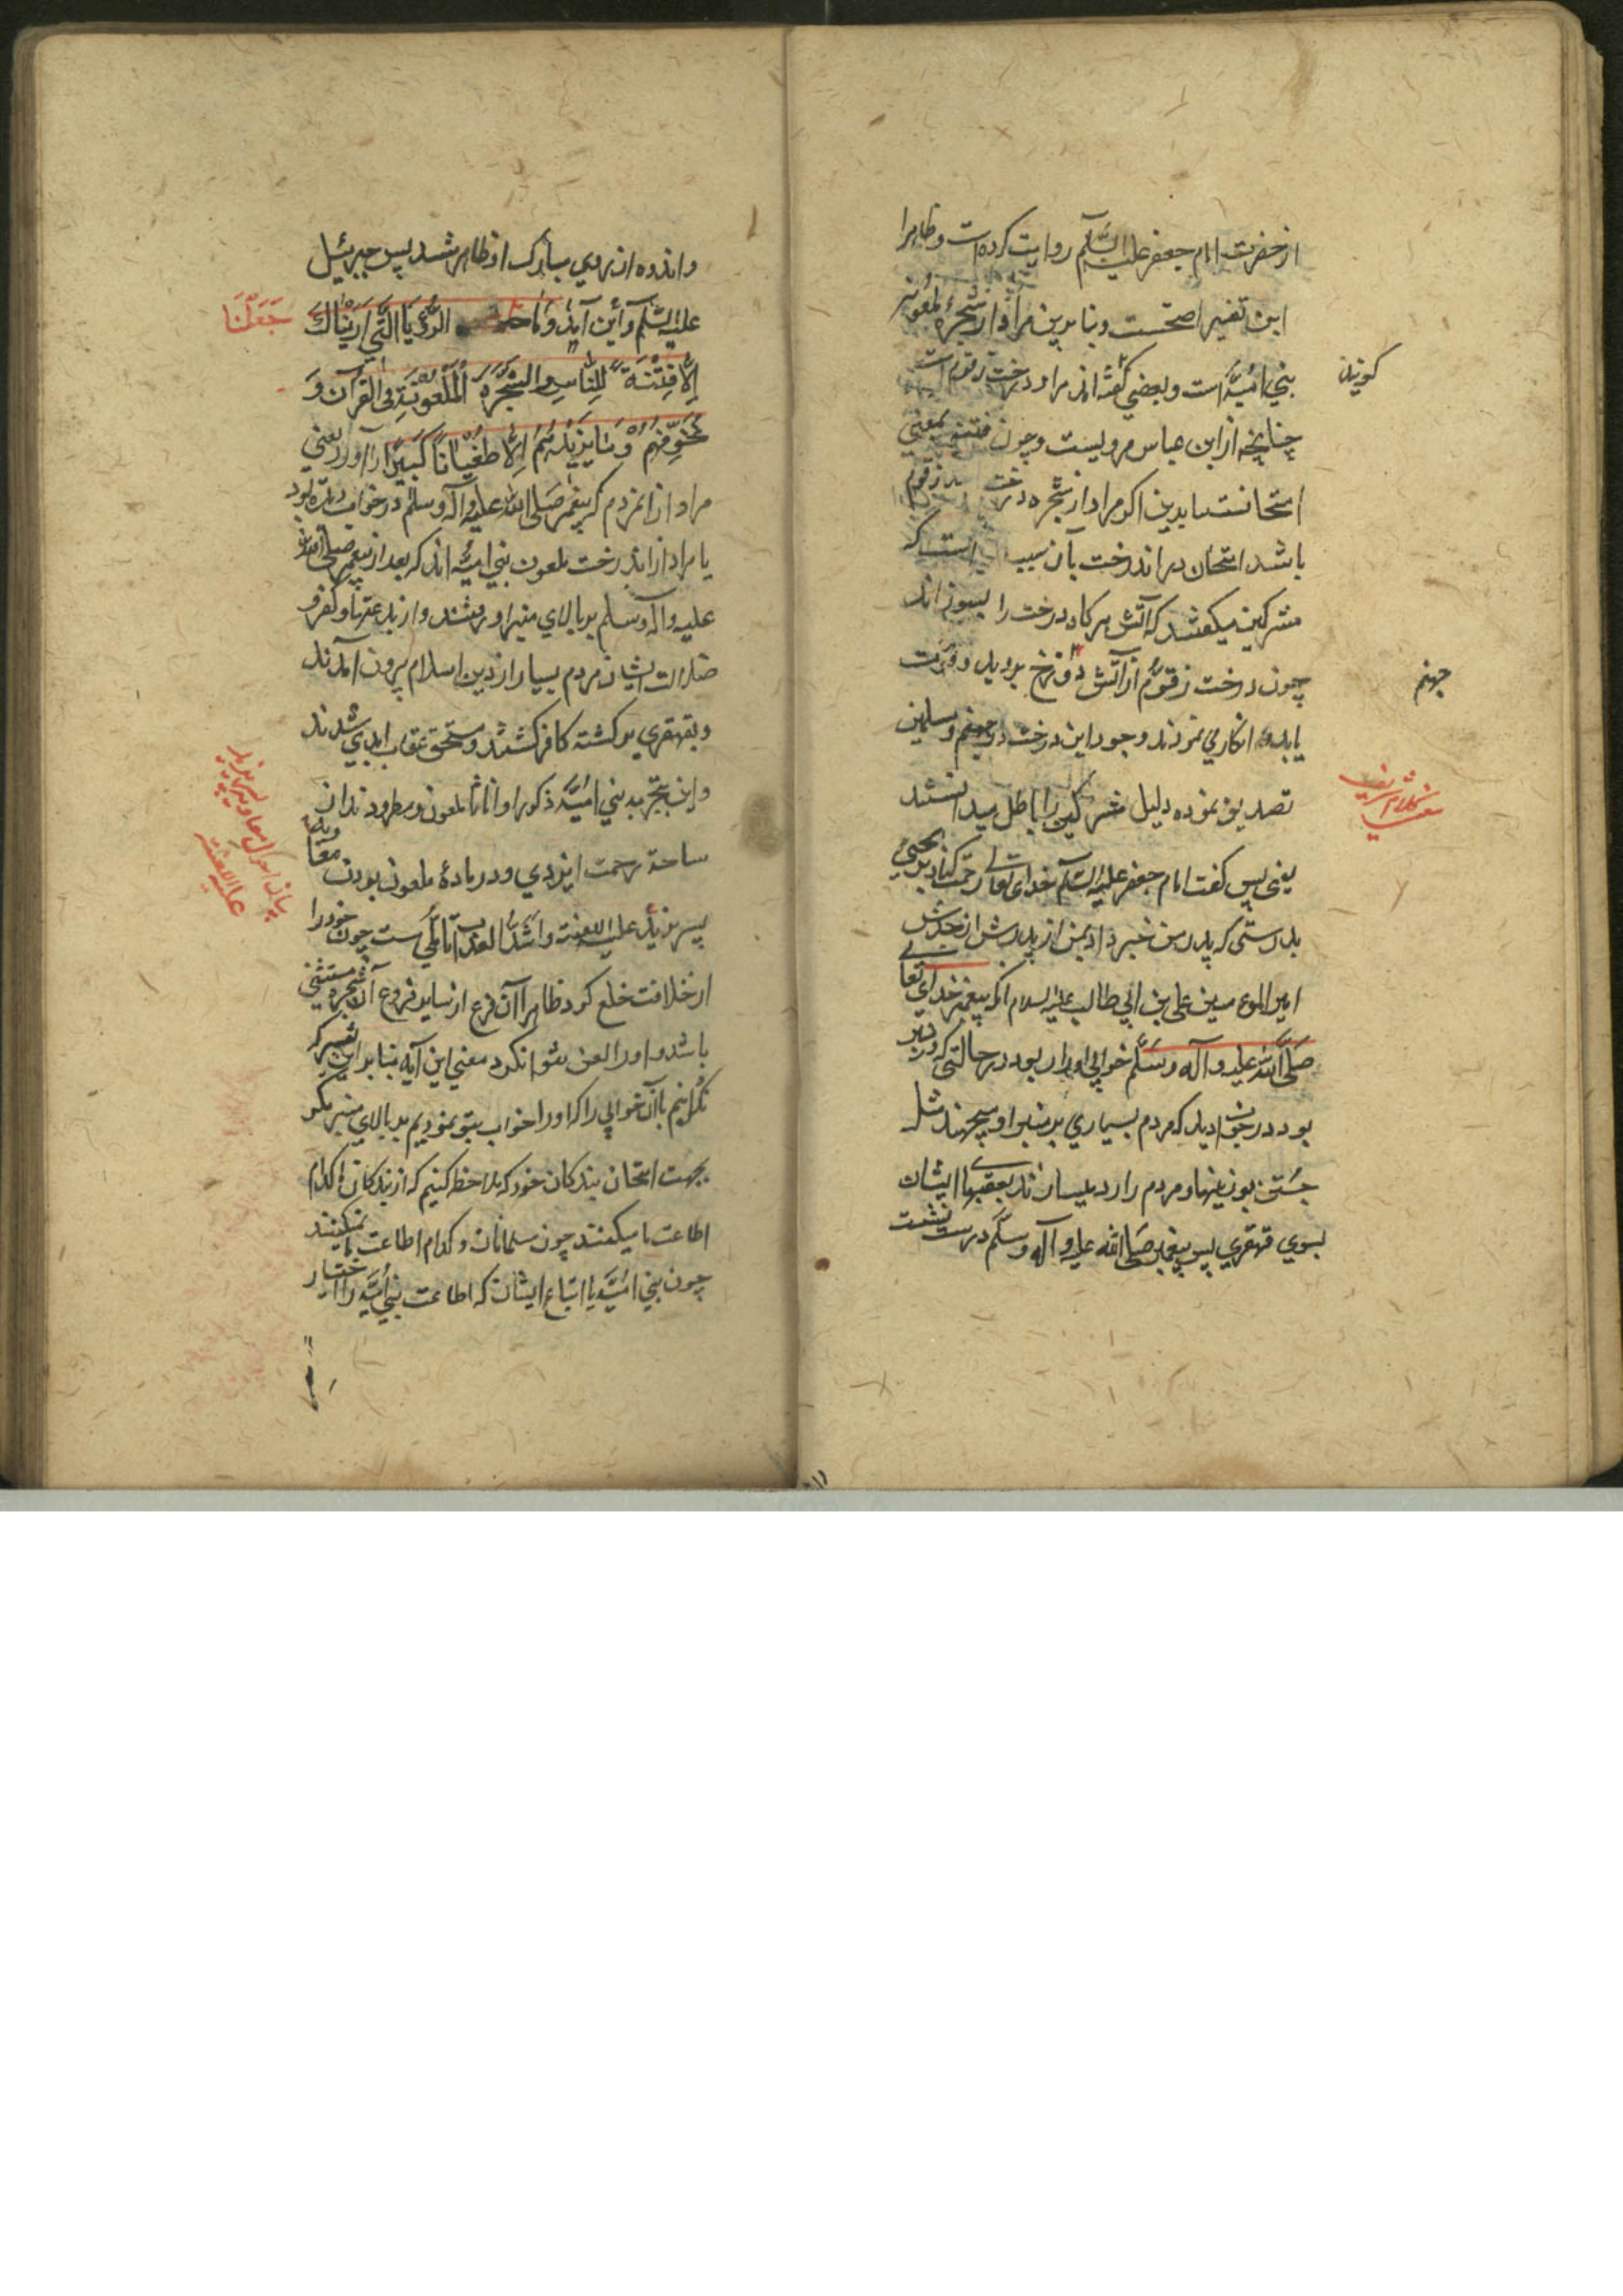 از حضرت امام جعفر علیه السّلم روایت کرده است و ظاهرا
این تفسیر اصحست و بنا برین مراد از شجرهٔ ملعونه
بنی امیّه است و بعضی گفته اند مراد درخت زقوم است
گویند
چنانچه از ابن عباس مرویست و چون فتنه بمعنی
امتحانست بنابرین اگر مراد از شجره درخت زقوم
باشد امتحان در اندرخت بآن سبب است که
مشرکین میکفتند که آتش هرکاه درخت را بسوزاند
چون درخت زقوّم از آتش دوزخ بروید و قوت
جهنم
یابد و انکار می نمودند وجود این درخت در جهنم و مسلمین
تصدیق نموده دلیل مشرکین را باطل میدانستند
یعنی پس کفت امام جعفر علیه السّلم خدای تعالی رحمت کناد بر یحیی
بدرستی که پدر من خبر داد بمن از پدرش از جدش
امیر المومنین علی بن ابی طالب علیه السلام که پیغمبر خدای تعالی
صَلَّی اللّه علیه و آله و سَلَّم خوابی او را ربود در حالتی که در منبر
بود در خواب دید که مردم بسیاری بر منبر او میجهند مثل
جستن بوزینها و مردم را رد میسازند بعقبها ایشان
بسوی قهقری پس پیغمبر صَلَی اللّه علیه و آله و سلّم درست نشست
و اندوه از روی مبارک او ظاهر شد پس جبرئیل
علیه السّلم و این آیه وَمَا الرُّؤیَا الَّتِی اَرَیْنَاکَ
جَعَلْنَا
اِلَّا فِتْنَةً لِلنَّاسِ وَ الشَّجَرَةَ الْمَلْعُونَةَ فِی القُرآن وَ
نُخَوِّفُهُم وَ مَا یَزِیدُهُم اِلّا طُغیَانًا کَبیرًا را آورد یعنی
مراد از انمردم که پیغمبر صَلی الله علیه و آله و سلم در خواب دیده بود
یا مراد از اندرخت ملعون بنی امیّه اند که بعد از پیغمبر صلی الله
علیه و آله و سلم بر بالای منبر او رفتند و از بدعتها و کفر و
ضلالت ایشان مردم بسیار از دین اسلام بیرون آمدند
و بقهقری برگشته کافر گشتند و مستحق عقاب ابدی شدند
و این شجره بنی امیّه ذکورا و اناثا ملعون و مطرود ند از
ساحة رحمت ایزدی و در بادهٔ ملعون بودن معاویه
پسر یزید علیه اللعنه و اشدّ العذاب تأملی ست چون خود را
از خلافت خلع کرد ظاهرا آن فرع از سایر فروع آن شجره مستثنی
باشد و او را لعن نتوان کرد معنی این آیه بنا بر این تفسیر که
نگردانیم باآن خوابی را که او را خواب بتو نمودیم بر بالای منبر مکر
بجهت امتحان بندکان خود که ملاحظه کنیم که از بندکان کدام
اطاعت ما میکنند چون مسلمانان و کدام اطاعت ما نمیکنند
چون بنی امیَّه با اتباع ایشان که اطاعت بنی امیّه را اختیار